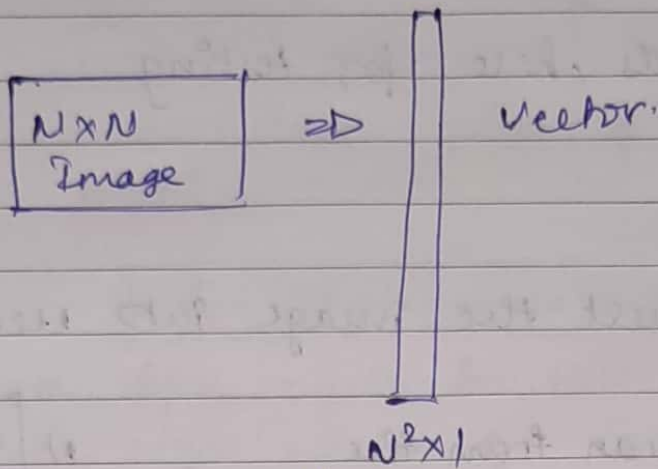 NxN
Image
⇒
Vector.
N²x1